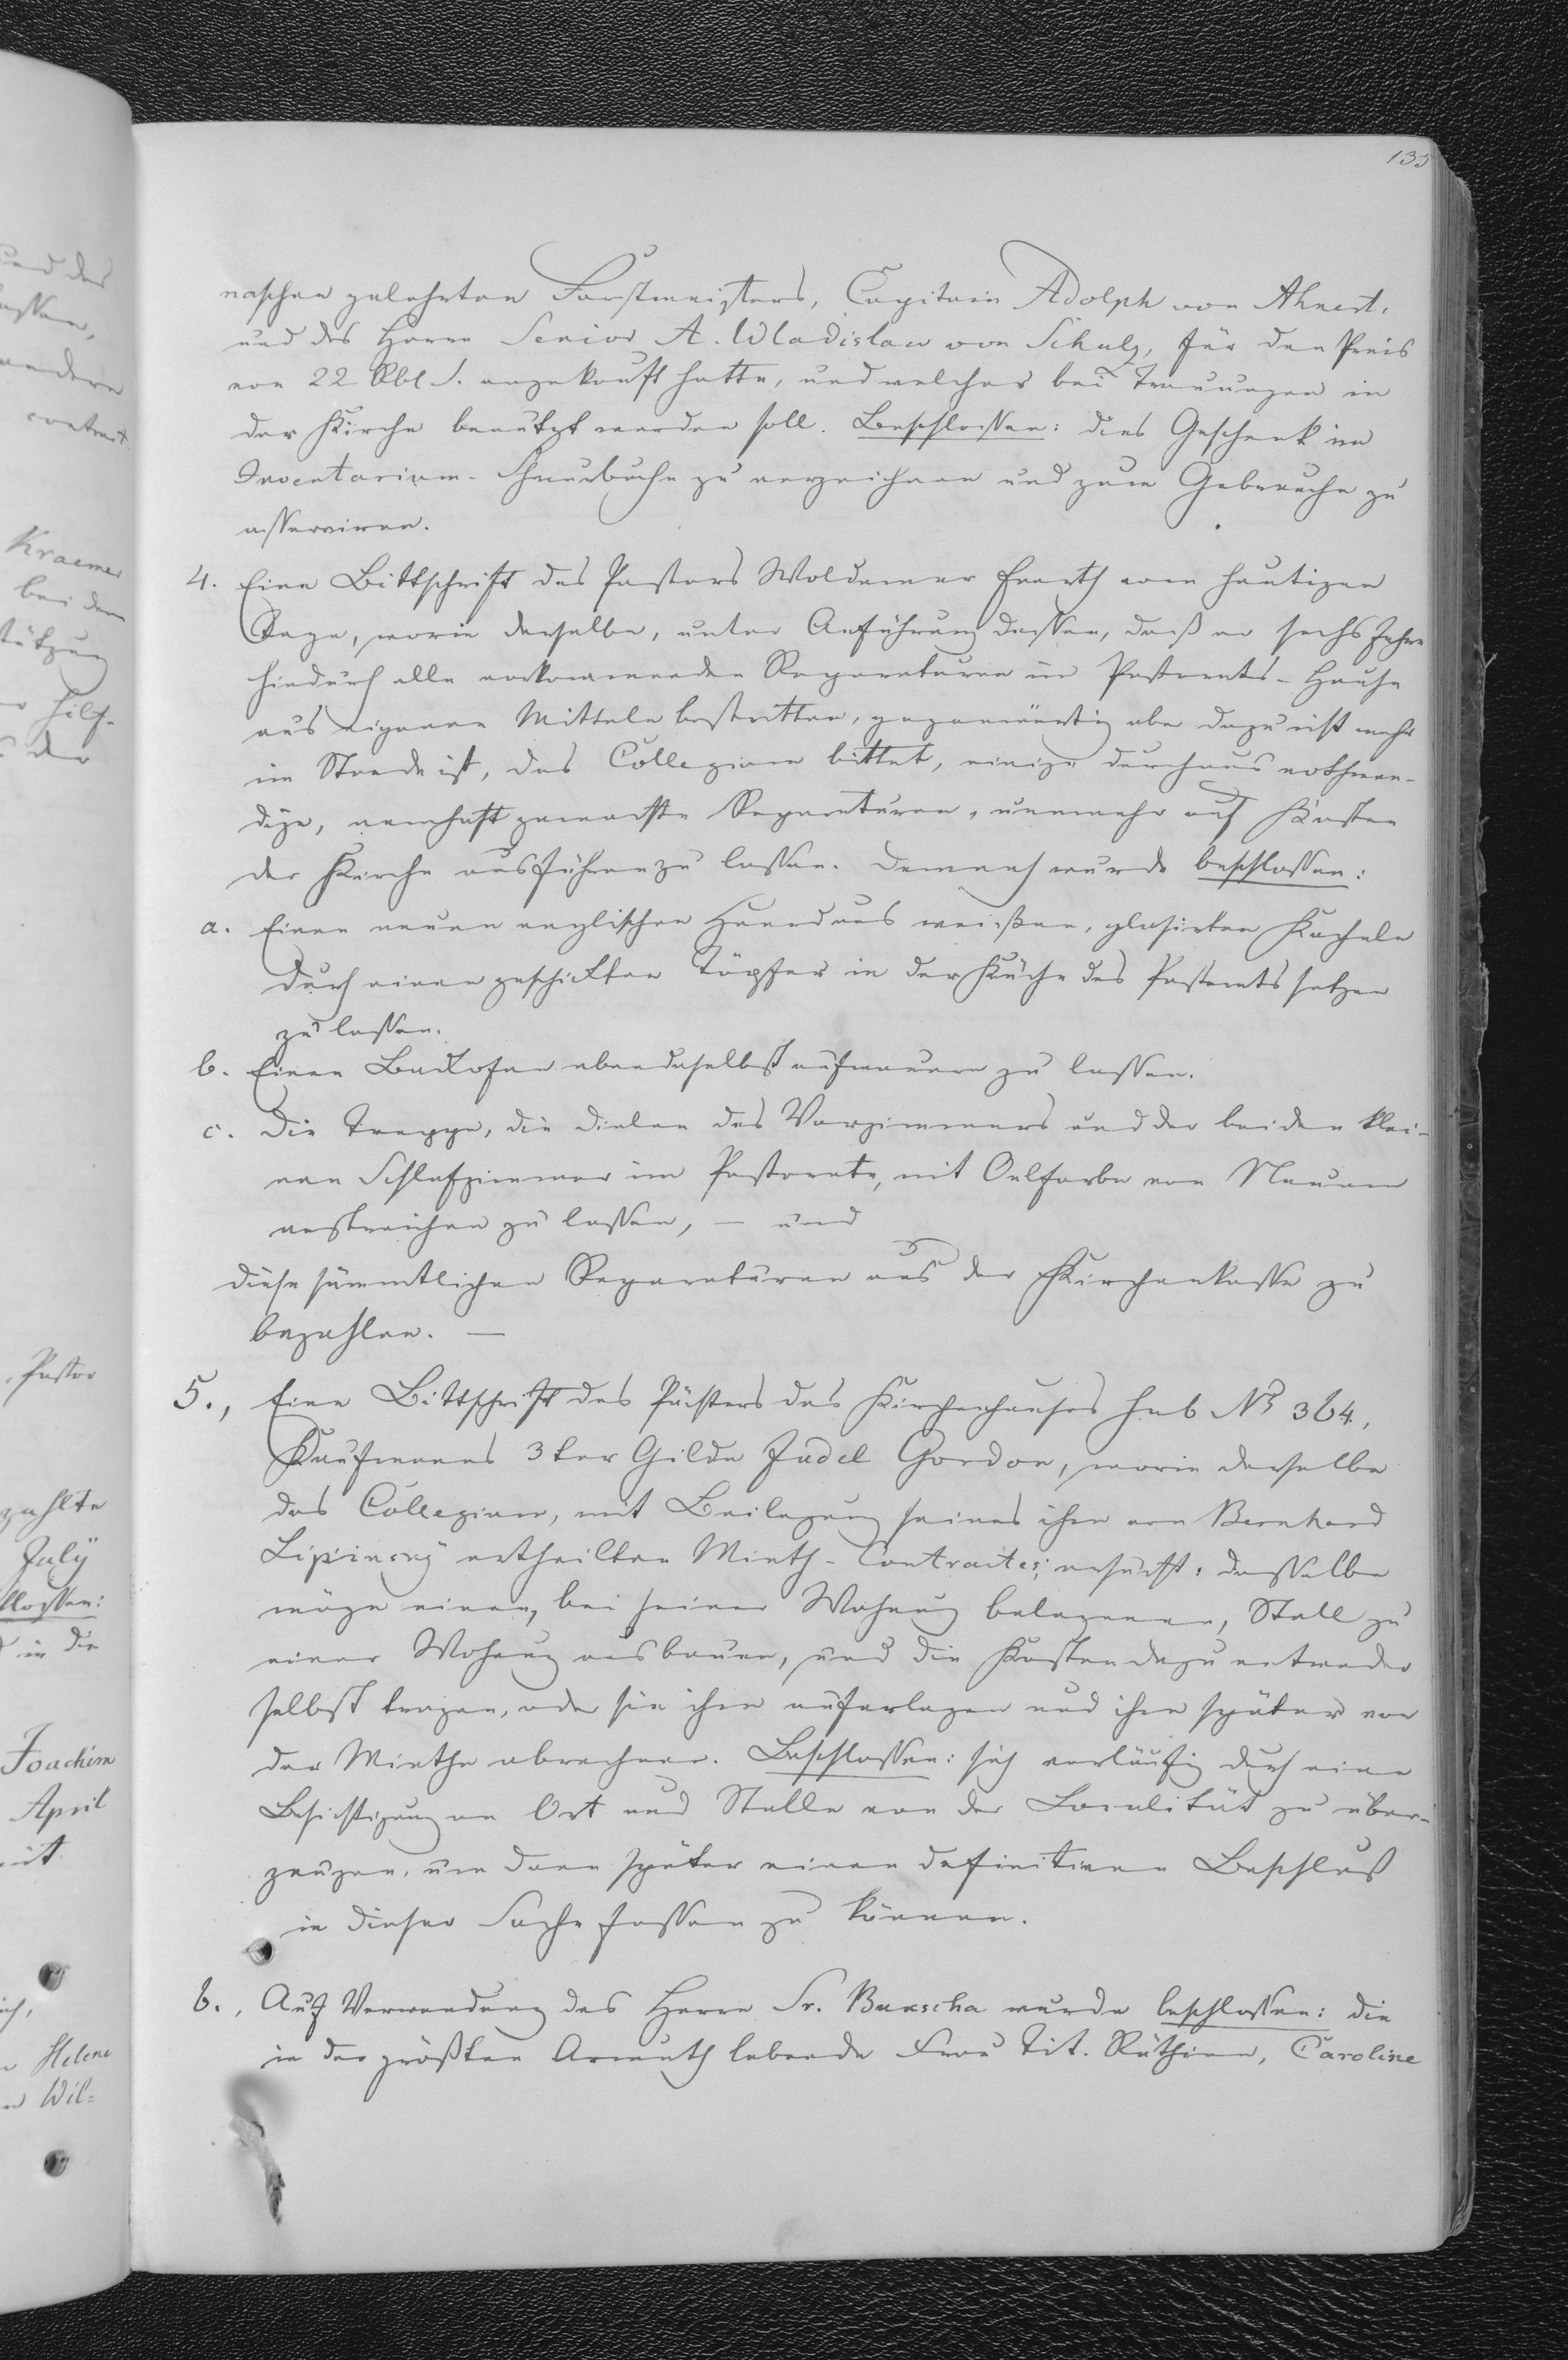 133
naschen gelehrten Forstmeisters, Capitain Adolph von Ahnert,
und des Herrn Senior A. Wladislaw von Schulz, für den Preis
von 22 Rbl S. angekauft hatte, und welches bei Trauungen in
der Kirche benutzt werden soll. Beschlossen: dies Geschenk im
Inventarium-Schnurbuche zu verzeichnen und zum Gebrauche zu
asserviren.
4. Eine Bittschrift des Pastors Woldemar Everth vom heutigen
Tage, worin derselbe, unter Anführung dessen, daß er sechs Jahre
hindurch alle vorkommenden Reparaturen im Pastorats-Hause
aus eigenen Mitteln bestritten, gegenwärtig aber dazu nicht mehr
im Stande ist, das Collegium bittet, einige durchaus nothwen-
dige, namhaft gemachte Reparaturen, nunmehr auf Kosten
der Kirche ausführen zu lassen. Demnach wurde beschlossen:
a. Einen neuen englischen Heerd aus weißen, glasirten Kacheln
durch einen geschickten Töpfer in der Küche des Pastorats setzen
zu lassen.
b. Einen Backofen ebendaselbst aufmauern zu lassen.
c. Die Treppe, die Dielen des Vorzimmers und der beiden klei-
nen Schlafzimmer im Pastorate, mit Oelfarbe von Neuem
anstreichen zu lassen, — und
diese sämmtlichen Reparaturen aus der Kirchenkasse zu
bezahlen. —
5., Eine Bittschrift des Pächters des Kirchenhauses sub No 364,
Kaufmanns 3ter Gilde Judel Gordon, worin derselbe
das Collegium, mit Beilegung seines ihm von Bernhard
Lipinsky ertheilten Mieth-Contractes, ersucht: dasselbe
möge einen, bei seiner Wohnung belegenen, Stall zu
einer Wohnung ausbauen, und die Kosten dazu entweder
selbst tragen, oder sie ihm auferlegen und ihm später von
der Miethe abrechnen. Beschlossen: sich vorläufig durch eine
Besichtigung an Ort und Stelle von der Localität zu über-
zeugen, um dann später einen definitiven Beschluß
in dieser Sache fassen zu können.
6., Auf Verwendung des Herrn Sr. Bukscha wurde beschlossen: die
in der größten Armuth lebende Frau Tit. Räthinn, Caroline